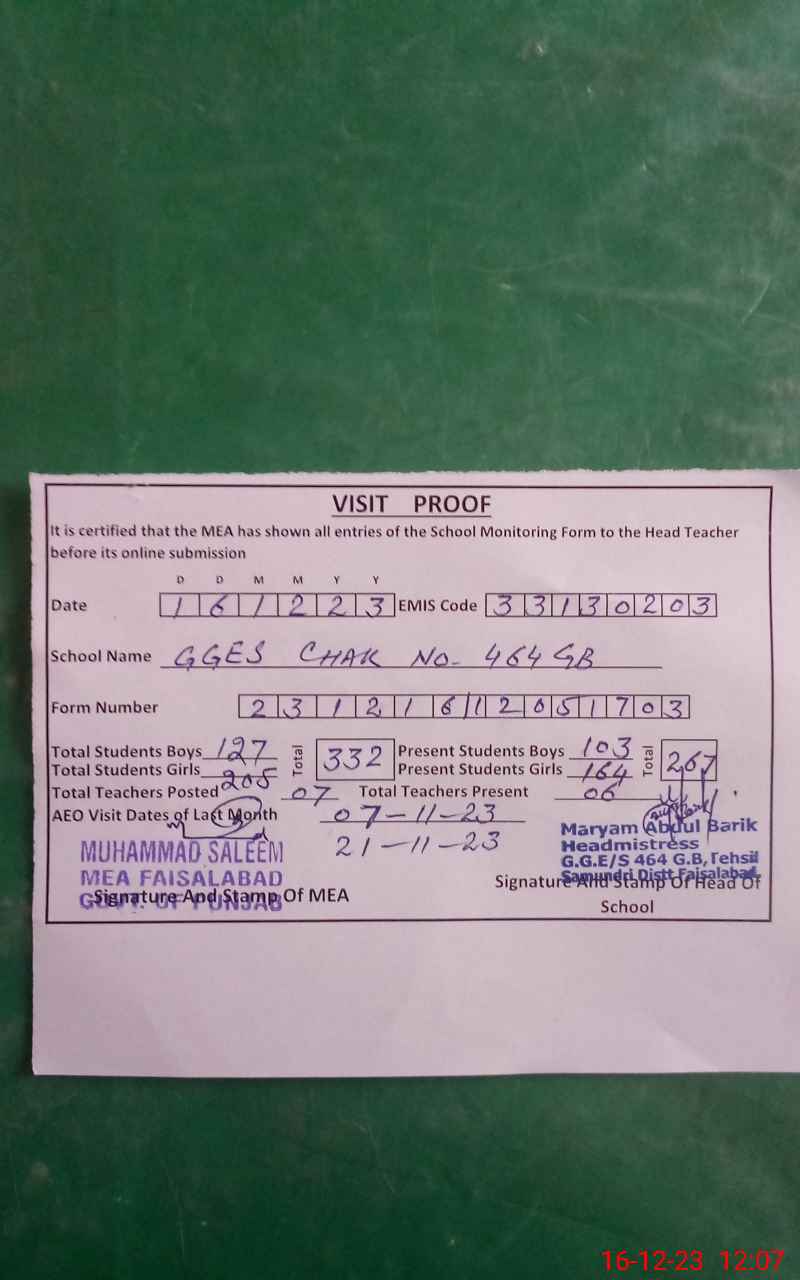 VISIT PROOF
It is certified that the MEA has shown all entries of the School Monitoring Form to the Head Teacher
before its online submission
D D M M Y Y
Date 1 6 1 2 2 3 EMIS Code 3 3 1 3 0 2 0 3
School Name GGES CHAK NO- 464 GB
Form Number 2 3 1 2 1 6 1 2 0 5 1 7 0 3
Total Students Boys 127 Total 332 Present Students Boys 103 Total 267
Total Students Girls 205 Present Students Girls 164
Total Teachers Posted 07 Total Teachers Present 06
AEO Visit Dates of Last Month 07-11-23
21-11-23
MUHAMMAD SALEEM
MEA FAISALABAD
GOVT. OF PUNJAB
Signature And Stamp Of MEA
Maryam Abdul Barik
Headmistress
G.G.E/S 464 G.B, Tehsil
Samundri Distt Faisalabad.
Signature And Stamp Of Head Of
School
16-12-23 12:07